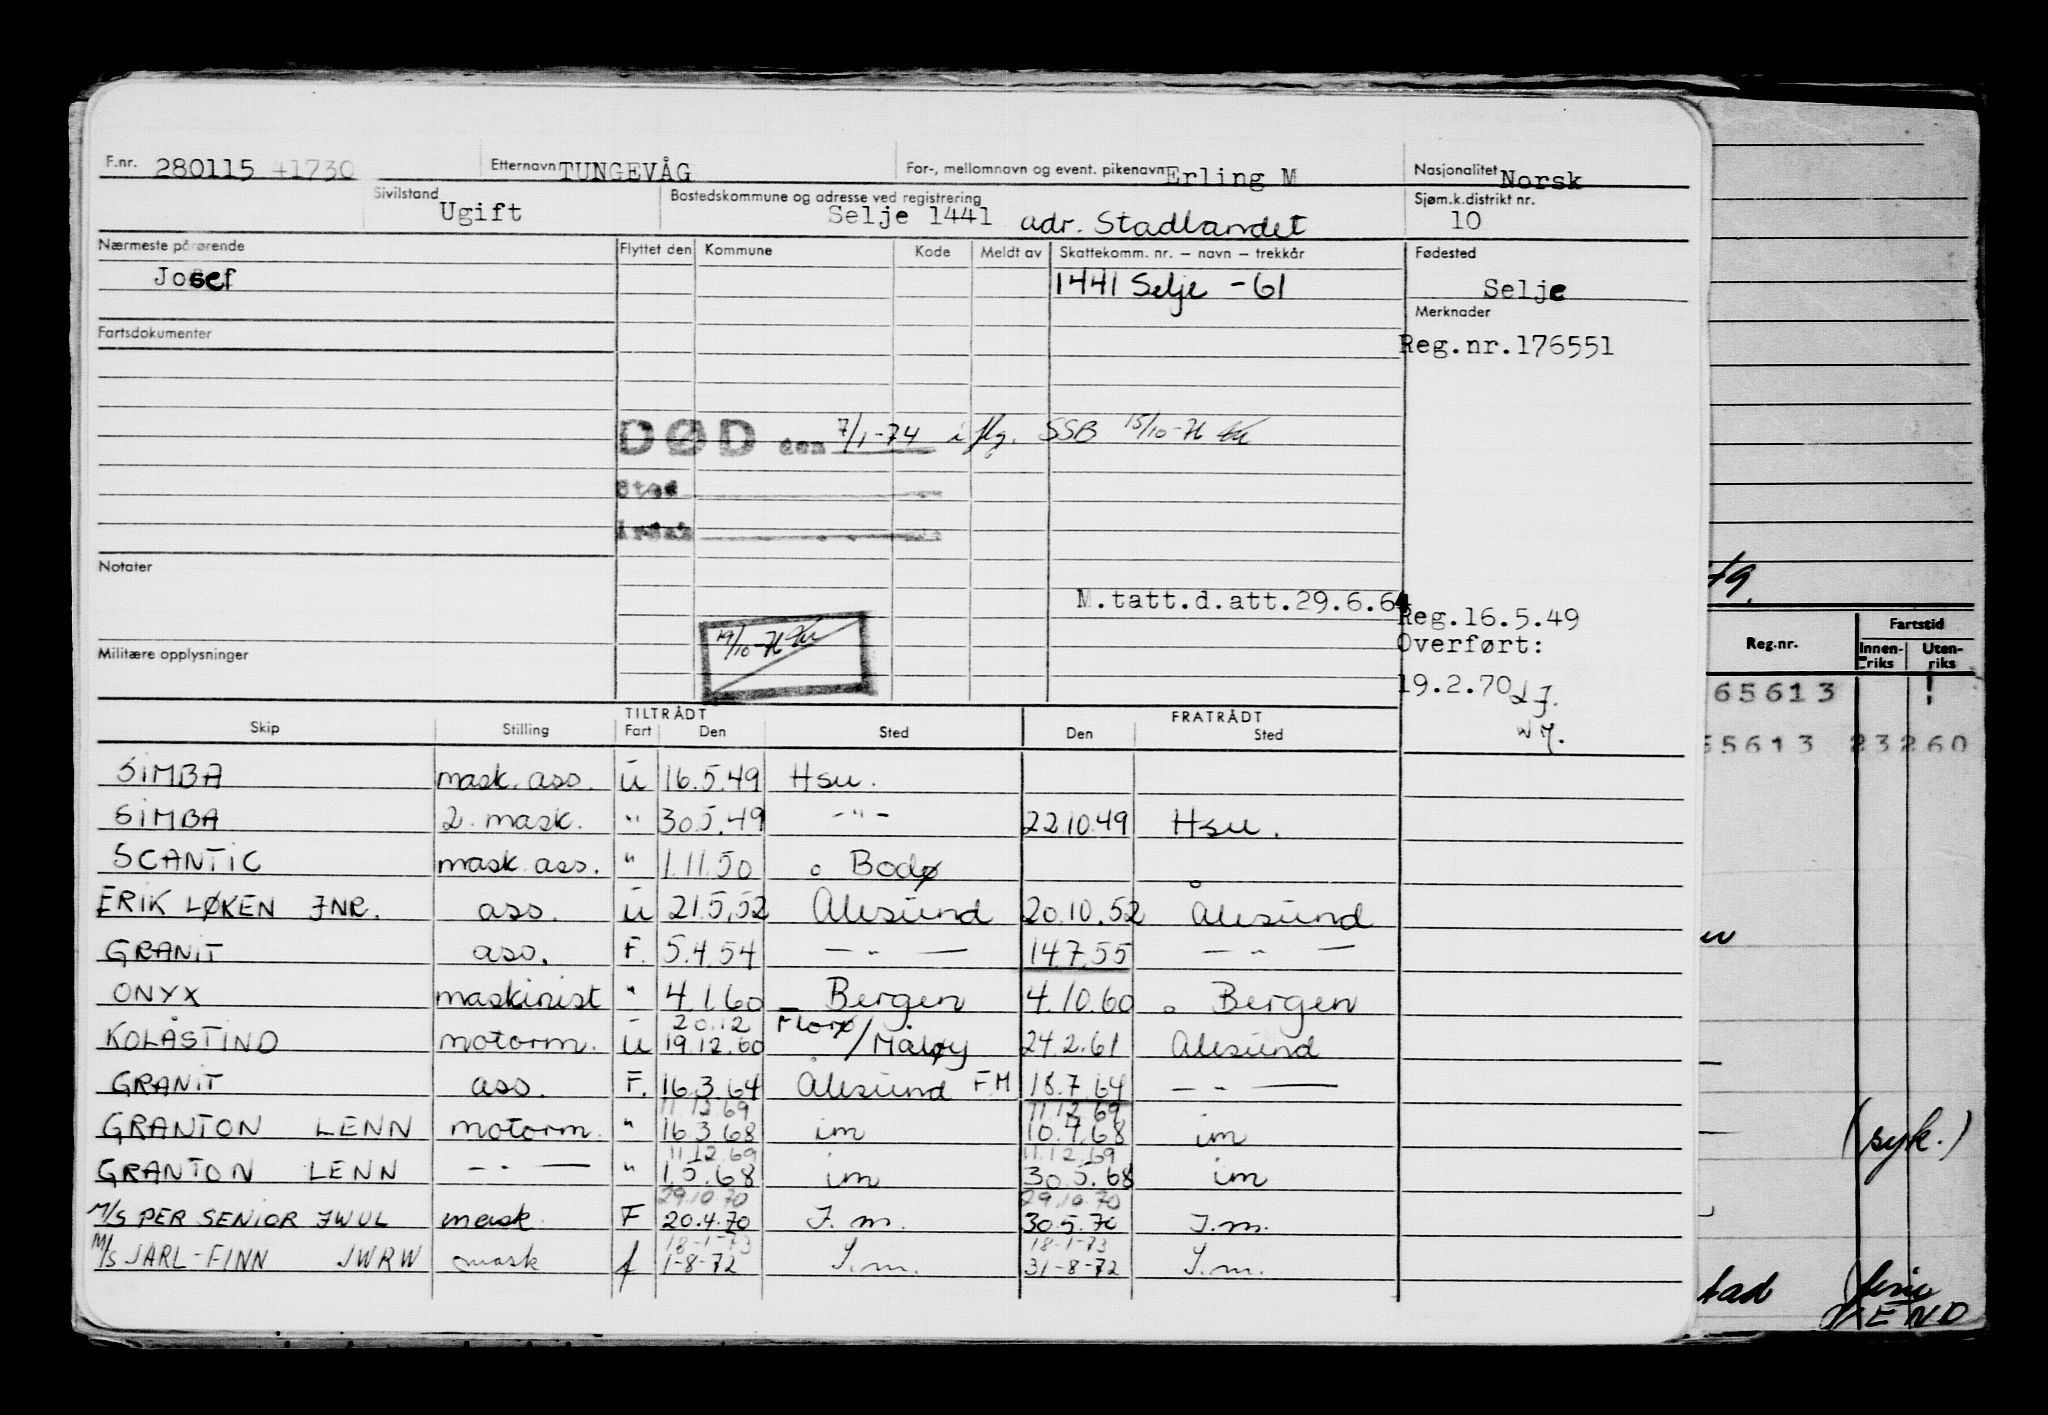 F.nr. 280115 41730 Etternavn TUNGEVÅG For-, mellomnavn og event. pikenavn Erling M Nasjonalitet Norsk
Sivilstand Ugift Bostedskommune og adresse ved registrering Selje 1441 adr. Stadlandet Sjøm.k.distrikt nr. 10
Nærmeste pårørende Flyttet den Kommune Kode Meldt av Skattekomm. nr. – navn – trekkår Fødested
Josef 1441 Selje - 61 Selje
Merknader
Fartsdokumenter Reg.nr.176551
DØD den 7/1-74 i flg. SSB 15/10-76
Sted
Årsak
Notater
M.tatt.d.att.29.6.64 Reg.16.5.49
19/10-76 Overført:
Militære opplysninger
19.2.70
TILTRÅDT FRATRÅDT
Skip Stilling Fart Den Sted Den Sted
SIMBA mask. ass. u 16.5.49 Hsu.
SIMBA 2. mask. " 30.5.49 -"- 22.10.49 Hsu.
SCANTIC mask. ass. " 1.11.50 Bodø
ERIK LØKEN JNR. ass. u 21.5.52 Ålesund 20.10.52 Ålesund
GRANIT ass. F. 5.4.54 — " — 14.7.55 — " —
ONYX maskinist " 4.1.60 Bergen 4.10.60 Bergen
20.12 Florø/
KOLÅSTIND motorm. u 19.12.60 Måløy 24.2.61 Ålesund
GRANIT ass. F. 16.3.64 Ålesund FM 18.7.64 — " —
11.12.69 11.12.69
GRANTON LENN motorm. " 16.3.68 im 10.4.68 im
11.12.69 11.12.69
GRANTON LENN — " — " 1.5.68 im 30.5.68 im
29.10.70 29.10.70
M/S PER SENIOR JWUL mask F 20.4.70 I.m. 30.5.70 I.m.
18-1-73 18-1-73
M/S JARL-FINN JWRW mask f 1-8-72 I.m. 31-8-72 I.m.
Fartstid
Reg.nr. Innen-riks Uten-riks
65613
65613 23260
(syk.)